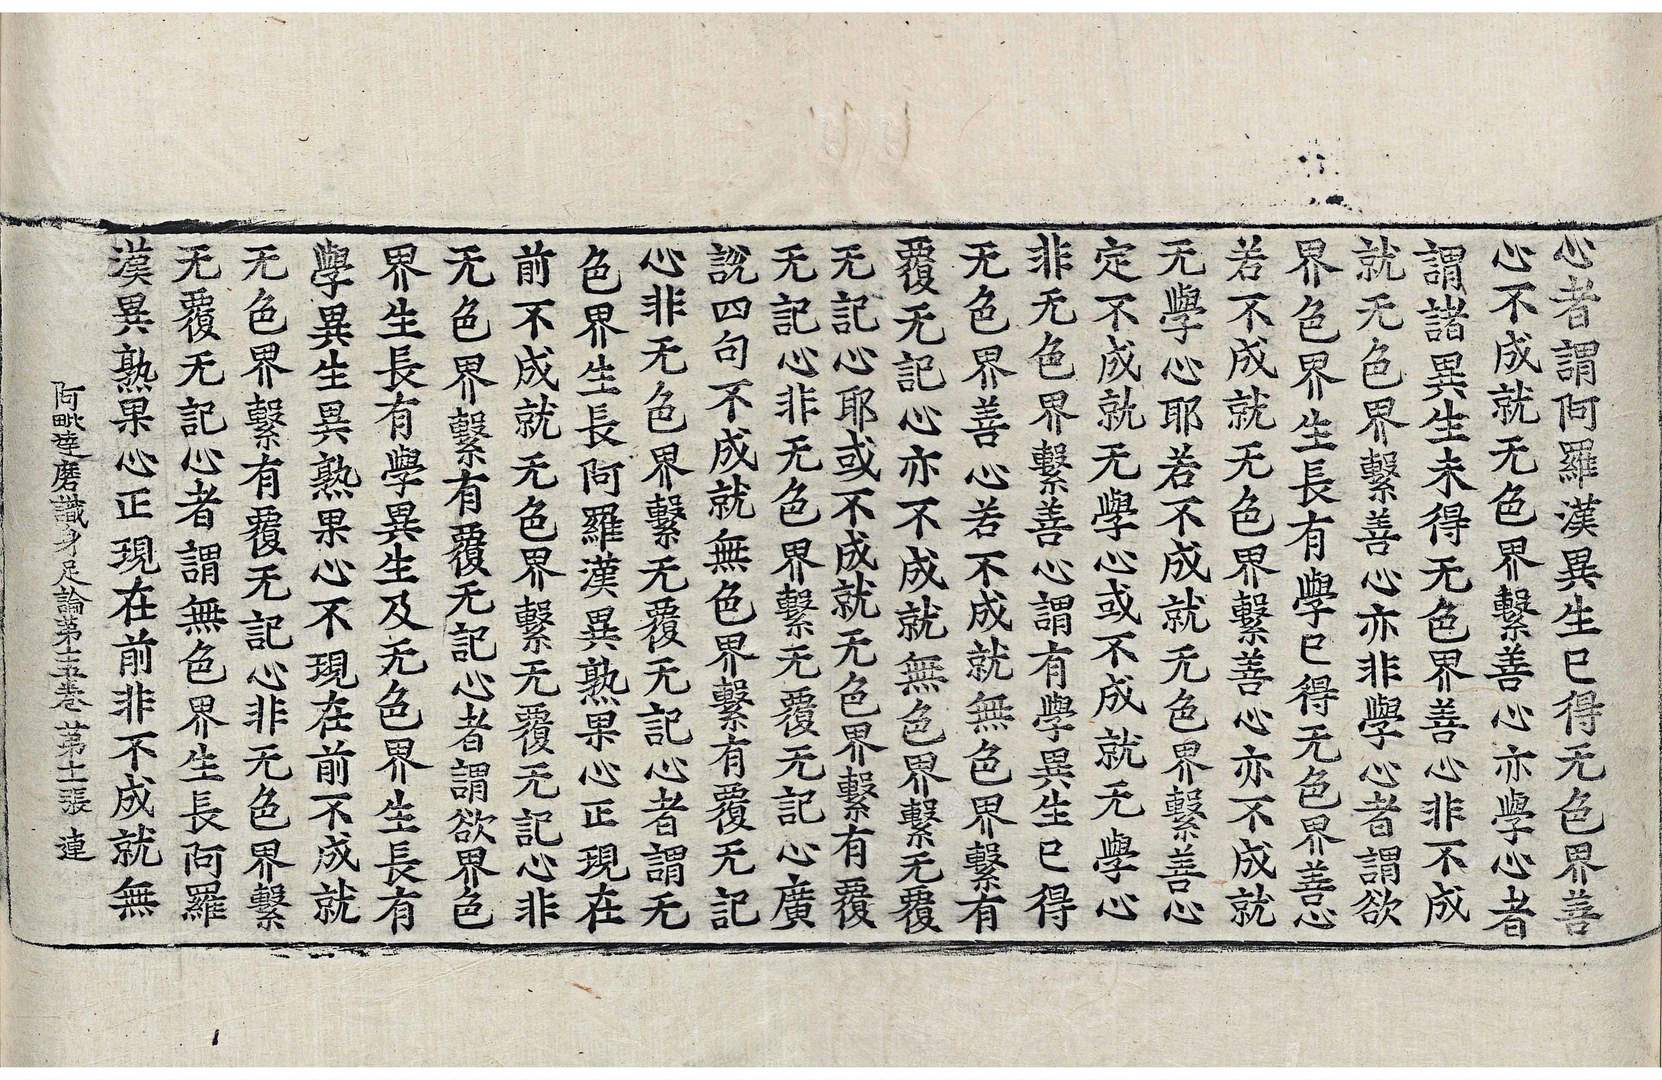 心者謂阿羅漢異生已得无色界善
心不成就无色界繫善心亦學心者
謂諸異生未得无色界善心非不成
就无色界繫善心亦非學心者謂欲
界色界生長有學已得无色界善心
若不成就无色界繫善心亦不成就
无學心耶若不成就无色界繫善心
定不成就无學心或不成就无學心
非无色界繫善心謂有學異生已得
无色界善心若不成就無色界繫有
覆无記心亦不成就無色界繫无覆
无記心耶或不成就无色界繫有覆
无記心非无色界繫无覆无記心廣
說四句不成就無色界繫有覆无記
心非无色界繫无覆无記心者謂无
色界生長阿羅漢異熟果心正現在
前不成就无色界繫无覆无記心非
无色界繫有覆无記心者謂欲界色
界生長有學異生及无色界生長有
學異生異熟果心不現在前不成就
无色界繫有覆无記心非无色界繫
无覆无記心者謂無色界生長阿羅
漢異熟果心正現在前非不成就無
阿毗達磨識身足論苐十五卷 苐十一張 連